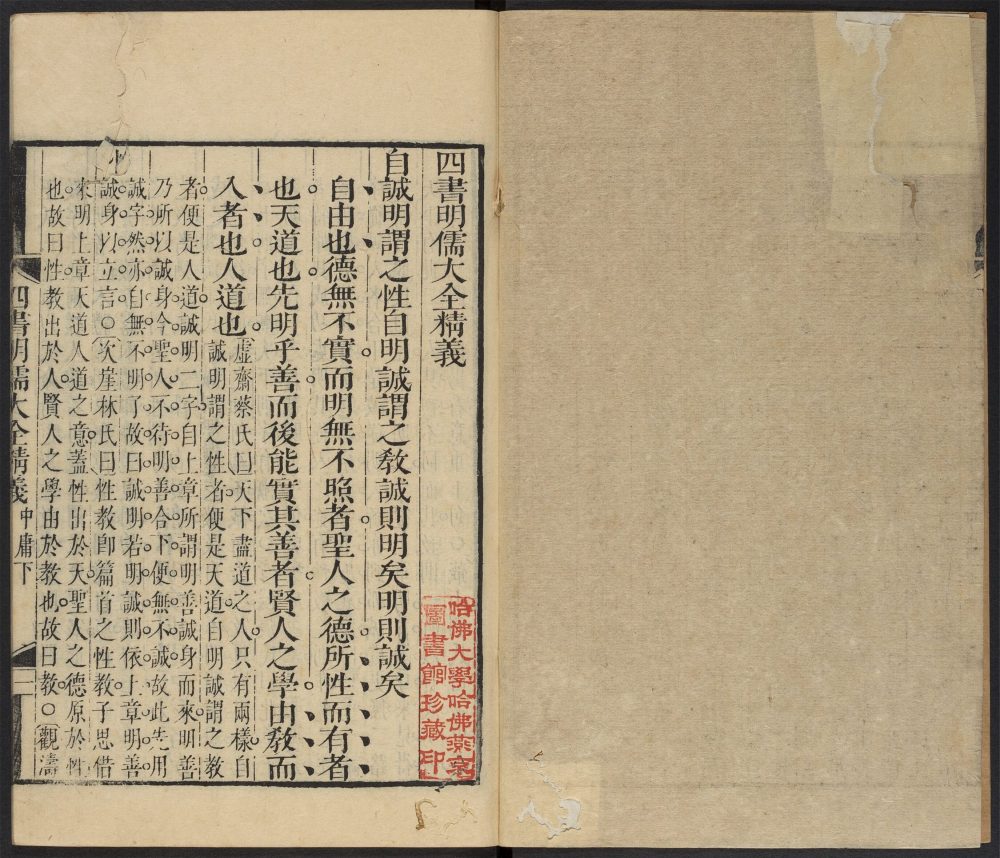 四書明儒大全精義
自誠明謂之性自明誠謂之教誠則明矣明則誠矣
自由也德無不實而明無不照者聖人之德所性而有者
也天道也先明乎善而後能實其善者賢人之學由教而
入者也人道也
虛齋蔡氏曰天下盡道之人只有兩樣自
誠明謂之性者便是天道自明誠謂之教
者便是人道誠明二字自上章所謂明善誠身而來明善
乃所以誠身今聖人不待明善合下便無不誠故此先用
誠字然亦自無不明了故曰誠明若明誠則依上章明善
誠身以立言○次崖林氏曰性教即篇首之性教子思借
來明上章天道人道之意蓋性出於天聖人之德原於性
也故曰性教出於人賢人之學由於教也故曰教○觀濤
四書明儒大全精義 中庸下 一
哈佛大學哈佛燕京
圖書館珍藏印